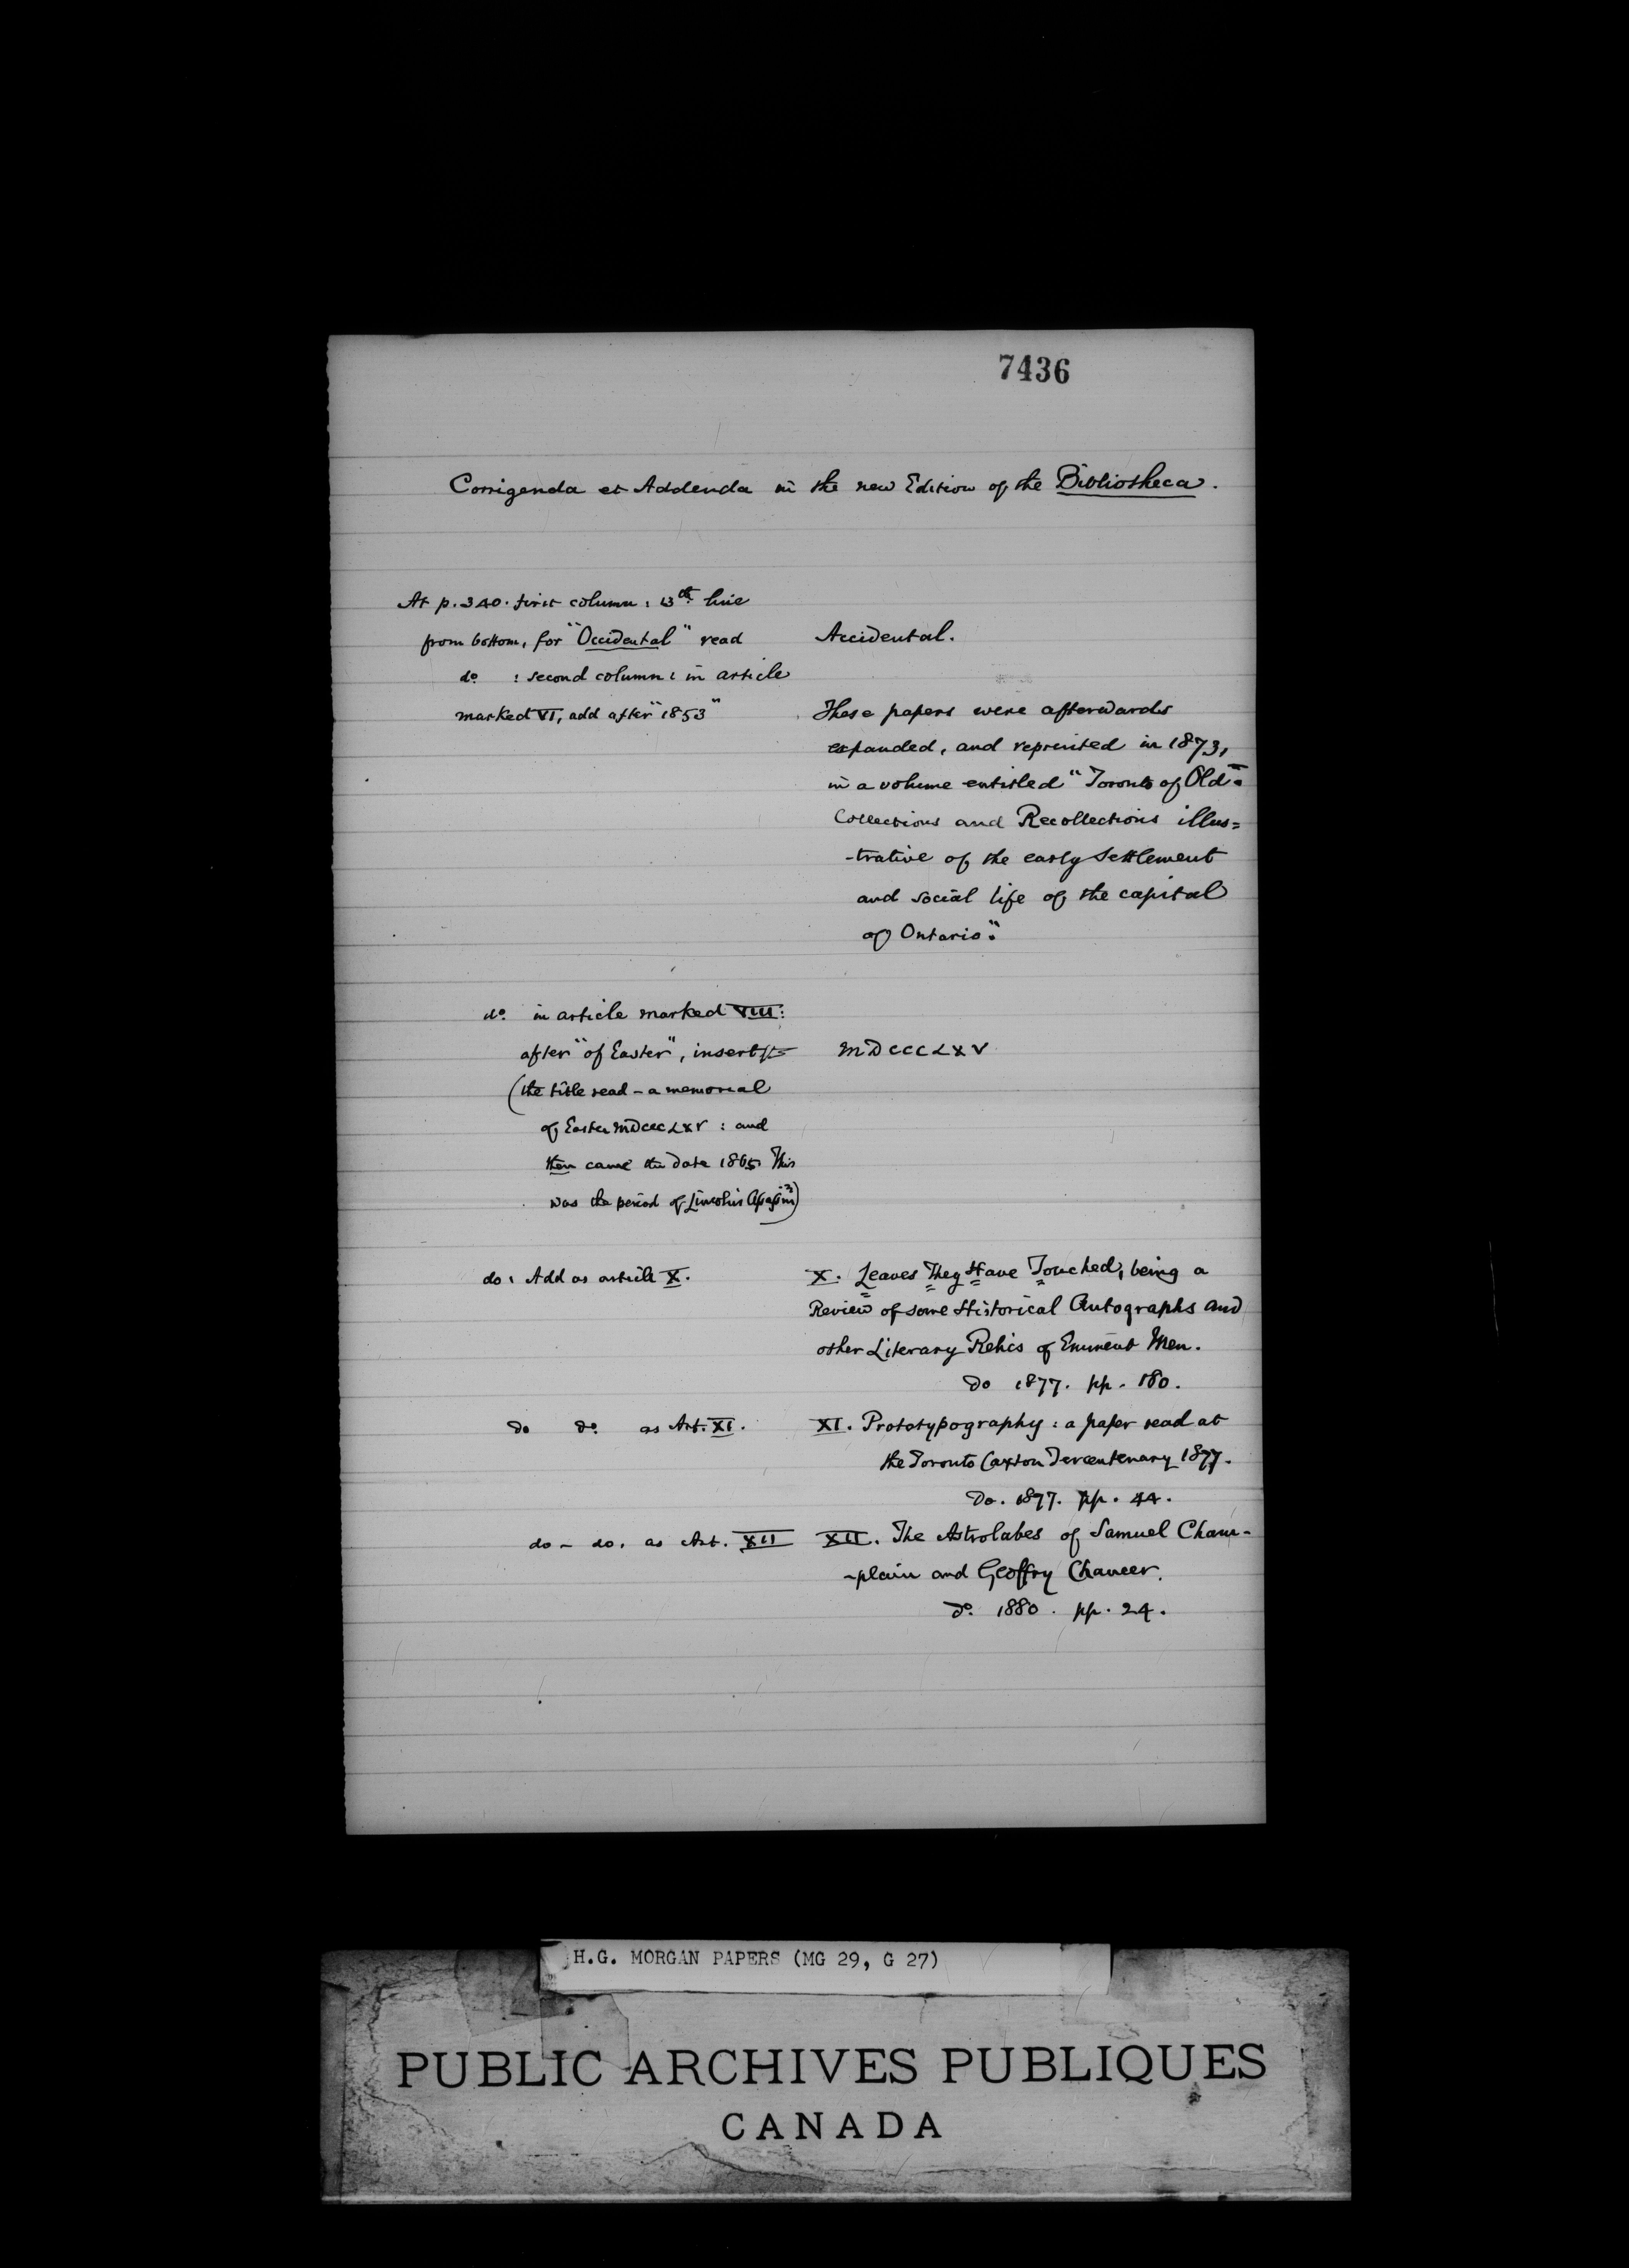 7436
Corrigenda et Addenda in the new Edition of the Bibliotheca.
At p. 340. first column : 13th line
from bottom, for "Occidental" read Accidental.
do : second column : in article
marked VI, add after "1853" These papers were afterwards
expanded, and reprinted in 1873,
in a volume entitled "Toronto of Old":
Collections and Recollections illus=
-trative of the early settlement
and social life of the capital
of Ontario".
do. in article marked VIII:
after "of Easter", insert MDCCCLXV
(the title read - a memorial
of Easter MDCCCLXV : and
then came the date 1865. This
was the period of Lincoln's
do : Add as article X. X. Leaves They Have Touched, being a
Review of some Historical Autographs and
other Literary Relics of Eminent Men.
Do 1877. pp. 180.
Do Do. as Art. XI. XI. Prototypography : a paper read at
the Toronto Caxton Tercentenary 1877.
Do. 1877. pp. 44.
do - do. as Art. XII XII. The Astrolabes of Samuel Cham-
-plain and Geoffry Chaucer.
Do. 1880. pp. 24.
H.G. MORGAN PAPERS (MG 29, G 27)
PUBLIC ARCHIVES PUBLIQUES
CANADA